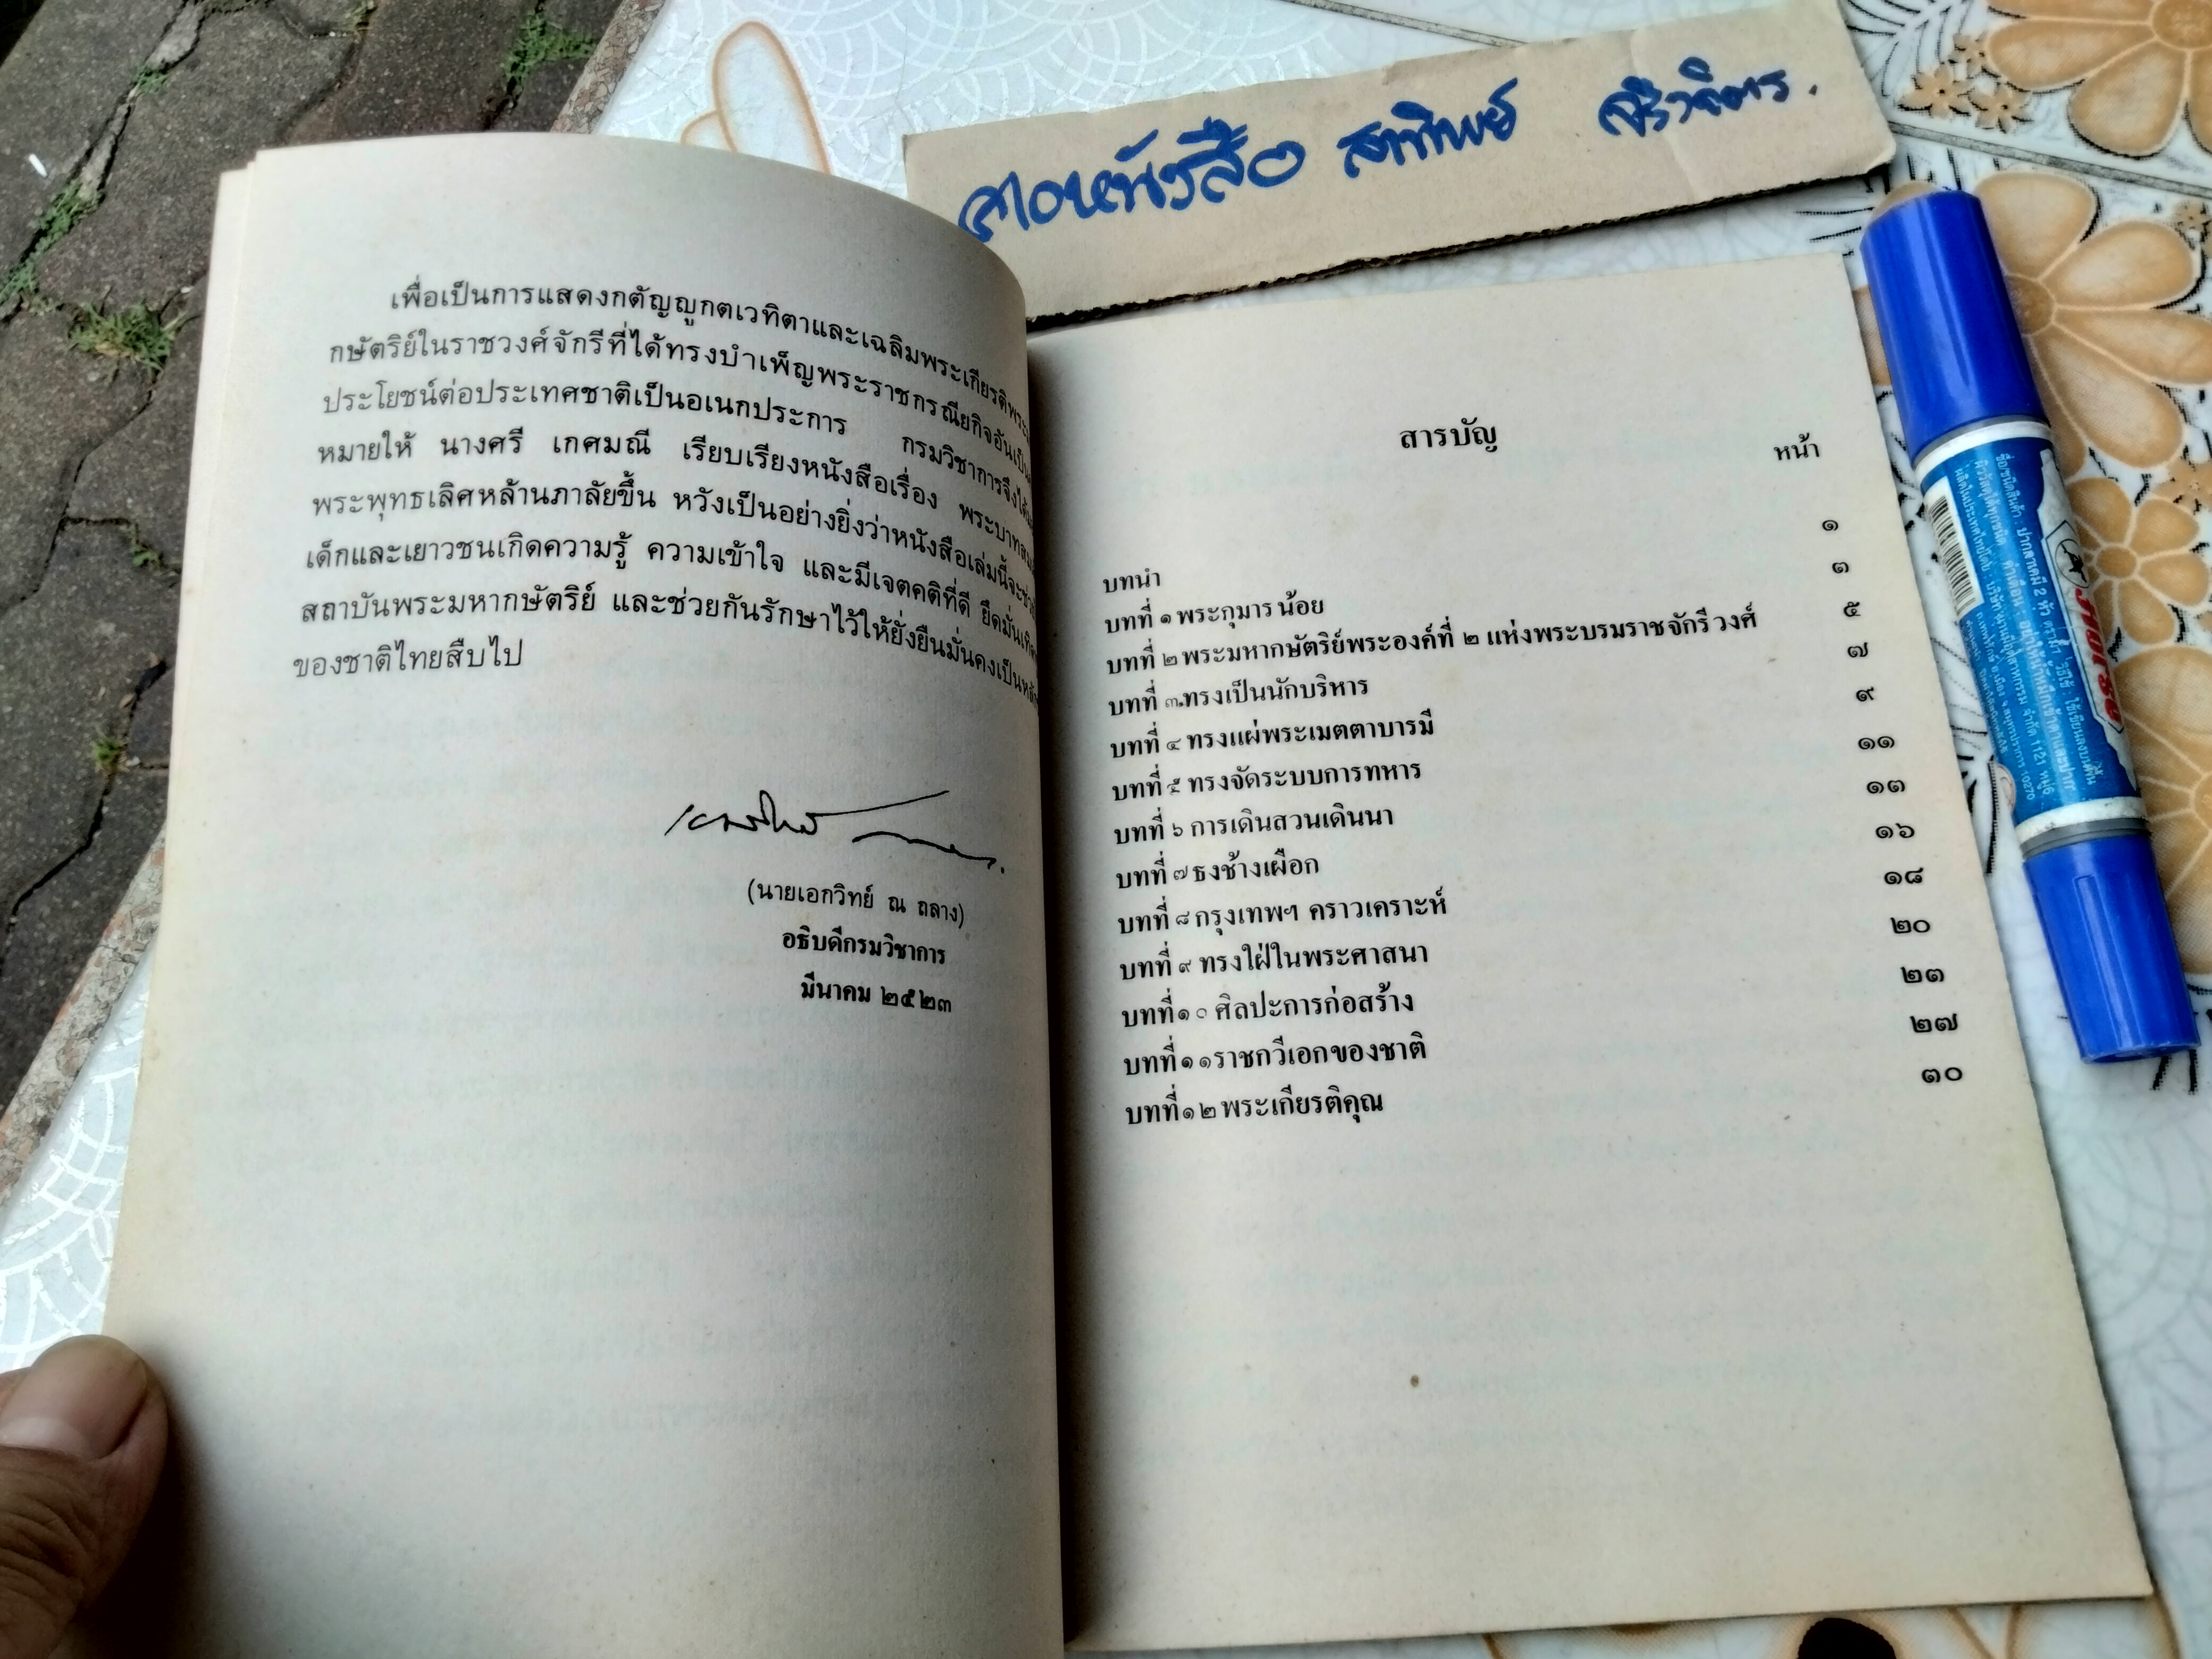 เพื่อเป็นการแสดงกตัญญูกตเวทิตาและเฉลิมพระเกียรติพระ
กษัตริย์ในราชวงศ์จักรีที่ได้ทรงบำเพ็ญพระราชกรณียกิจอันเป็น
ประโยชน์ต่อประเทศชาติเป็นอเนกประการ กรมวิชาการจึงได้
หมายให้ นางศรี เกศมณี เรียบเรียงหนังสือเรื่อง พระบาทสม
พระพุทธเลิศหล้านภาลัยขึ้น หวังเป็นอย่างยิ่งว่าหนังสือเล่มนี้จะช่วย
เด็กและเยาวชนเกิดความรู้ ความเข้าใจ และมีเจตคติที่ดี ยึดมั่นเทิด
สถาบันพระมหากษัตริย์ และช่วยกันรักษาไว้ให้ยั่งยืนมั่นคงเป็นหลัก
ของชาติไทยสืบไป
(นายเอกวิทย์ ณ ถลาง)
อธิบดีกรมวิชาการ
มีนาคม ๒๕๒๓
หนังสือ
สารบัญ
หน้า
บทนำ ๑
บทที่ ๑ พระกุมารน้อย ๑
บทที่ ๒ พระมหากษัตริย์พระองค์ที่ ๒ แห่งพระบรมราชจักรีวงศ์ ๕
บทที่ ๓ ทรงเป็นนักบริหาร ๗
บทที่ ๔ ทรงแผ่พระเมตตาบารมี ๙
บทที่ ๕ ทรงจัดระบบการทหาร ๑๑
บทที่ ๖ การเดินสวนเดินนา ๑๓
บทที่ ๗ ธงช้างเผือก ๑๖
บทที่ ๘ กรุงเทพฯ คราวเคราะห์ ๑๘
บทที่ ๙ ทรงใฝ่ในพระศาสนา ๒๐
บทที่ ๑๐ ศิลปะการก่อสร้าง ๒๓
บทที่ ๑๑ ราชกวีเอกของชาติ ๒๗
บทที่ ๑๒ พระเกียรติคุณ ๓๐
ตราม้า